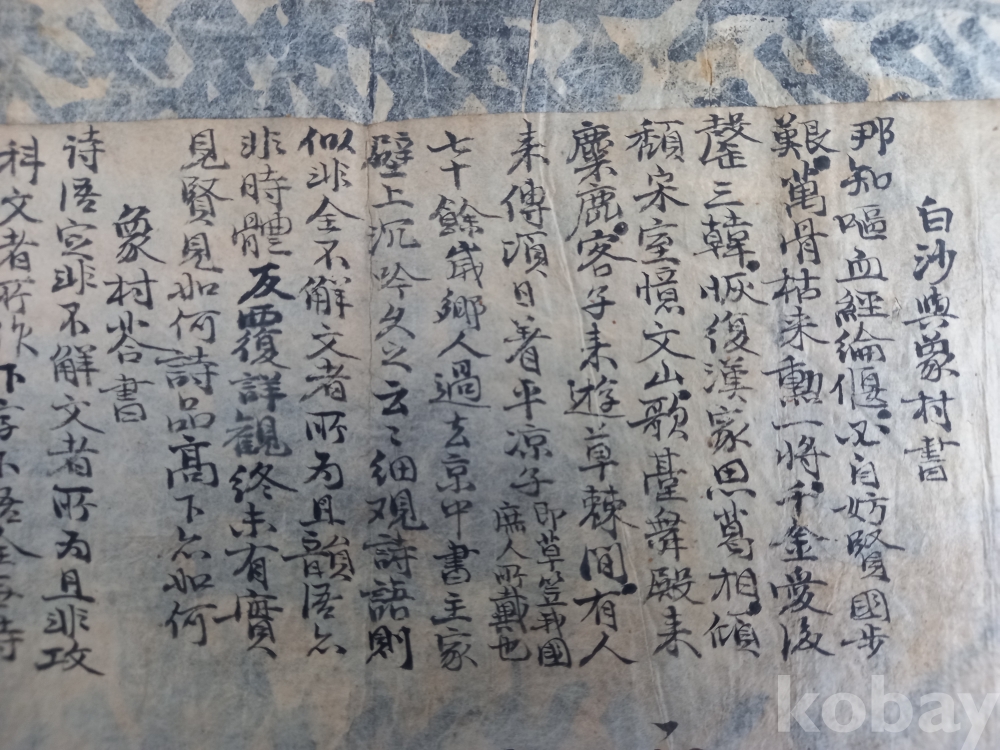 白沙與象村書
那知嘔血經綸偃又自妨賢國步
艱萬骨枯來勳一將千金愛後
罄三韓恢復漢家思葛相傾
頹宋室憶文山歌臺舞殿来
麋鹿客子来遊草棘間有人
来傳須日着平凉子即草笠我國
庶人所戴也
七十餘歲鄉人過去京中書主家
壁上沉吟久之云〻細观詩語則
似非全不解文者所为且韻语亦
非時體反覆詳觀終未有實
見賢見如何詩品高下亦如何
象村答書
诗语定非不解文者所为且非攻
科文者所作下字不
kobay